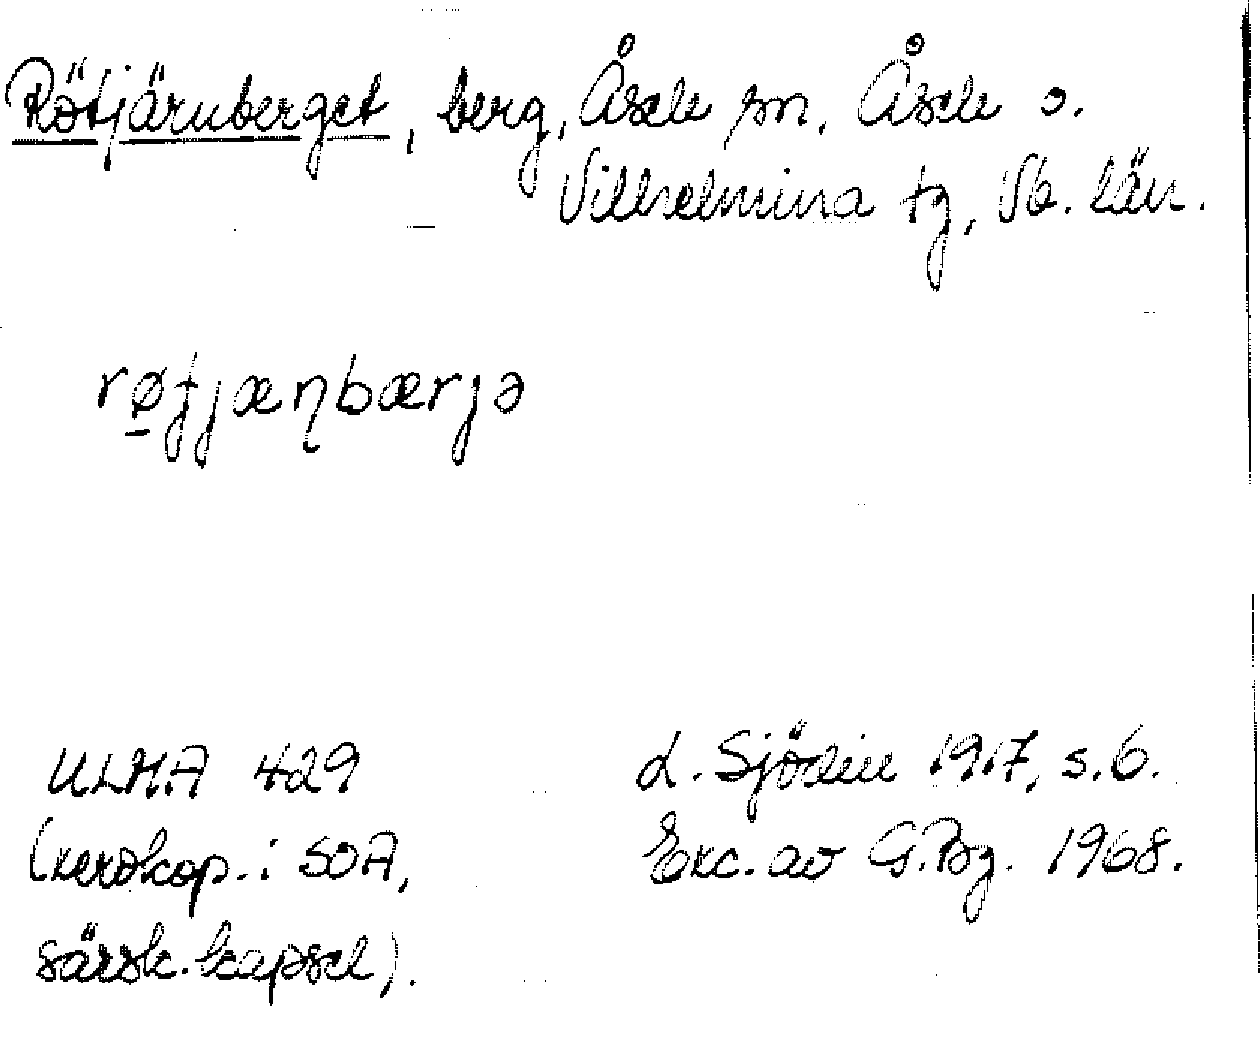 Rötjärnberget, berg, Åsele sn, Åsele o.
Vilhelmina tg, Vb. län.
rø̱tjæṇbærjə
ULMA 429
(xerokop. i SOA,
särsk. kapsel).
L. Sjödin 1917, s. 6.
Exc. av G.Bg. 1968.